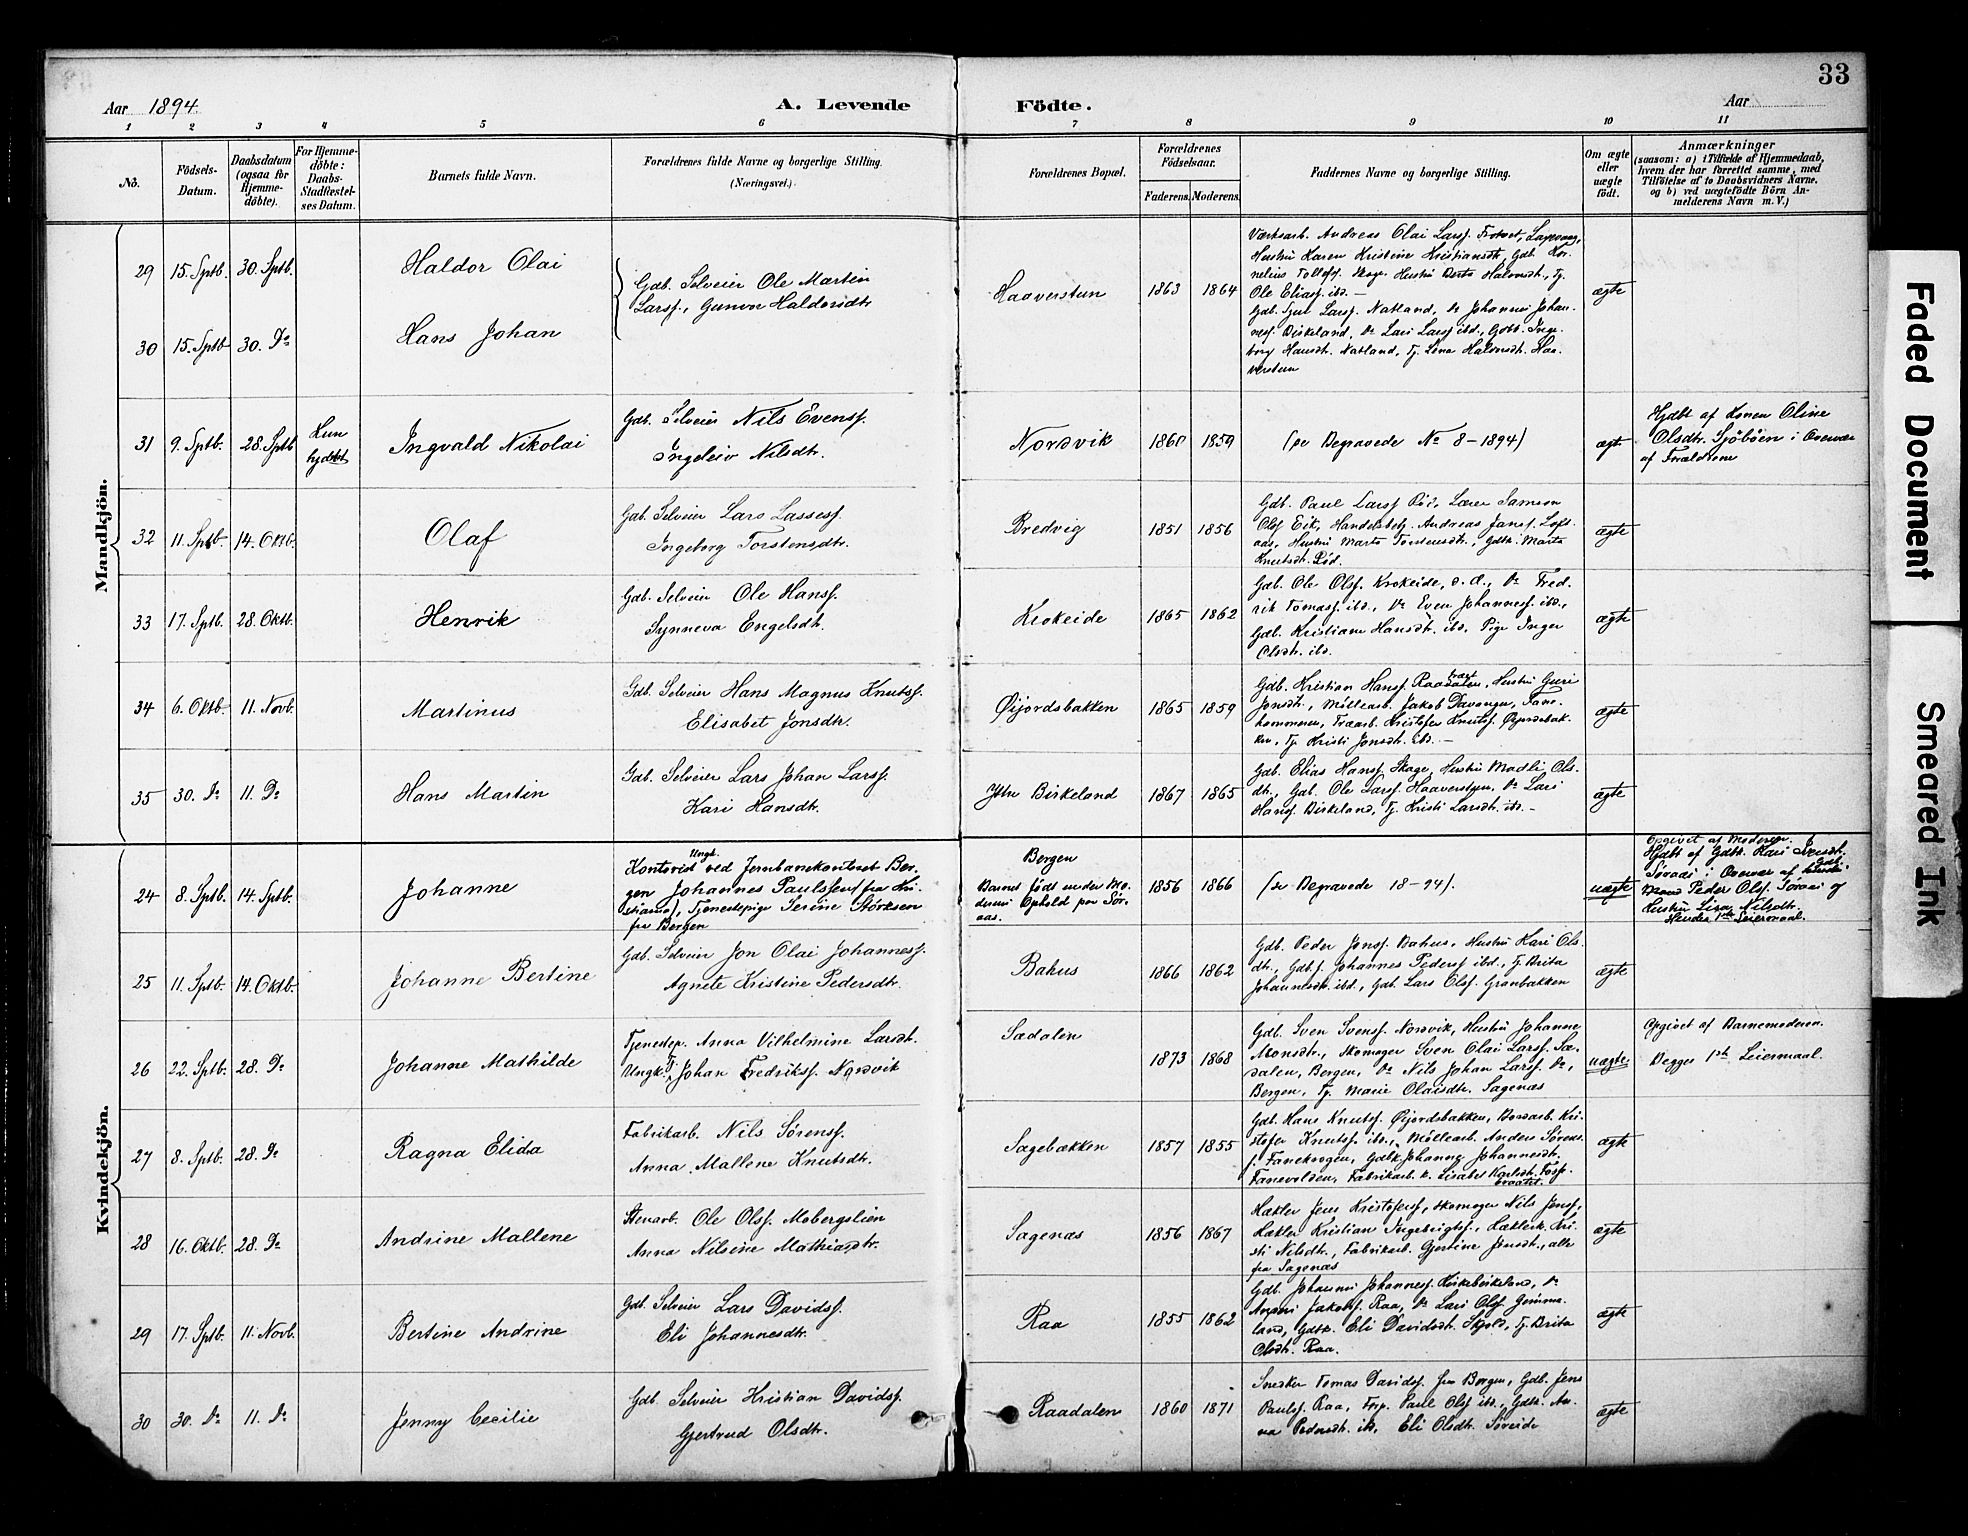 33
Aar 1894.
A. Levende Födte.
Aar
1 2 3 4 5 6 7 8 9 10 11
No.
Födsels-
Datum.
Daabsdatum
(ogsaa for
Hjemme-
döbte).
For Hjemme-
döbte:
Daabs-
Stadfæstel-
ses Datum.
Barnets fulde Navn.
Forældrenes fulde Navne og borgerlige Stilling.
(Næringsvei.)
Forældrenes Bopæl.
Forældrenes
Födselsaar.
Faderens. Moderens.
Faddernes Navne og borgerlige Stilling.
Om ægte
eller
uægte
födt.
Anmærkninger
(saasom: a) i Tilfælde af Hjemmedaab,
hvem der har forrettet samme, med
Tilföielse af to Daabsvidners Navne,
og b) ved uægtefödte Börn An-
melderens Navn m. V.)
Mandkjön.
29 15. Sptb. 30. Sptb. Haldor Olai
Gdb. Selveier Ole Martin
Larss., Gunvor Haldorsdtr.
Haaverstun 1863 1864
Værksarb. Andreas Olai Larss.
Hustru Karen Kristine Kristiansdtr., Gdb. Kor-
nelius Tollefs. Skage, Hustru Berta Halvorsdtr., Tj.
Ole Eliass. ibd. —
ægte
30 15. Sptb 30. Do Hans Johan
Gdb. Larss. Natland, Do Johannes Johan-
ness. Birkeland, Do Lars Larss. ibd., Gdbk. Inge-
borg Hansdtr. Natland, Tj. Lena Halvorsdtr. Haa-
verstun
31 9. Sptb. 28. Sptb
Kun
hjdöbt
Ingvald Nikolai
Gdb. Selveier Nils Evenss.
Ingeleiv Nilsdtr.
Nordvik 1860 1859
(se Begravede No 8 - 1894)
ægte
Hjdbt af Konen Oline
Olsdtr. Sjöböen i Overvær
af Forældrene
32 11. Sptb. 14. Oktb. Olaf
Gdb. Selveier Lars Lassess.
Ingeborg Torstensdtr.
Bredvig 1851 1856
Gdb. Paul Larss. Röd, Lærer Samson
Olss. Eik, Handelsbetj. Andreas Janss. Lofs-
aas, Hustru Marta Torstensdtr., Gdbk. Marta
Knutsdtr. Röd.
ægte
33 17. Sptb. 28. Oktb. Henrik
Gdb. Selveier Ole Hanss.
Synneva Engelsdtr.
Krokeide 1865 1862
Gdb. Ole Olss. Krokeide, s. d., Do Fred-
rik Tomass. ibd., Do Even Johanness. ibd.,
Gdb. Kristiane Hansdtr. ibd. Pige Inger
Olsdtr. ibd.
ægte
34 6. Oktb. 11. Novb. Martinus
Gdb. Selveier Hans Magnus Knutss.
Elisabet Jonsdtr.
Øijordsbakken 1865 1859
Gdb. Kristian Hanss. Raadalen, Hustru Guri
Jonsdtr., Möllearb. Jakob Davanger, Fane-
hammeren, Træarb. Kristofer Knutss. Øijordsbak-
ken, Tj. Kristi Jonsdtr. ibd. —
ægte
35 30. Do 11. Do Hans Martin
Gdb. Selveier Lars Johan Larss.
Kari Hansdtr.
Ytre Birkeland 1867 1865
Gdb. Elias Hanss. Skage, Hustru Madli Ols-
dtr., Gdb. Ole Larss. Haaverstun, Do Lars
Hanss. Birkeland, Tj. Kristi Larsdtr. ibd. —
ægte
Kvindekjön.
24 8. Sptb. 14. Sptb. Johanne
Ungk.
Kontorist ved Jernbanekontoret Ber-
gen Johannes Paulssen (fra Kri-
stiania), Tjenestepige Serine Störksen
fra Bergen
Bergen
Barnet födt under Mo-
derens Ophold paa Sör-
aas.
1856 1866
(se Begravede 18-94).
uægte
Opgivet af Moderen.
Hjdbt af Gdbk. Kari Iversdtr.
Söraas i Overvær af Gdb.
Peder Olss. Söraas og
Hustru Lisa Nilsdtr.
Hendes 1ste Leiermaal.
25 11. Sptb. 14. Oktb. Johanne Bertine
Gdb. Selveier Jon Olai Johanness.
Agnete Kristine Pedersdtr.
Bahus 1866 1862
Gdb. Peder Jonss. Bahus, Hustru Kari Ols-
dtr., Gdbs. Johannes Pederss. ibd., Tj. Brita
Johannesdtr. ibd., Gdb. Lars Olss. Granbakken
ægte
26 22. Sptb. 28. Do Johanne Mathilde
Tjenestep. Anna Vilhelmine Larsdtr.
Ungk. Johan Fredrikss. Nordvik
Sædalen 1873 1868
Gdb. Sven Svenss. Nordvik, Hustru Johanne
Monsdtr., Skomager Sven Olai Larss. Sæ-
dalen, Bergen, Do Nils Johan Larss. Do,
Bergen, Tj. Marie Olaisdtr. Sagenæs
uægte
Opgivet af Barnemoderen.
Begges 1ste Leiermaal.
27 8. Sptb. 28. Do Ragna Elida
Fabrikarb. Nils Sörenss.
Anna Mallene Knutsdtr.
Sagebakken 1857 1855
Gdb. Hans Knutss. Øijordsbakken, Bordarb. Kri-
stofer Knutss. ibd., Möllearb. Anders Sörens-
s. Fanekrogen, Gdbk. Johanna Johannesdtr.
Fanevolden, Fabrikarb. k. Lisabet Karlsdtr. Fosp-
braatet.
ægte
28 16. Oktb. 28. Do Andrine Mallene
Stenarb. Ole Olss. Mobergslien
Anna Nilsine Mathiasdtr.
Sagenæs 1856 1867
Hækler Jens Kristoferss., Skomager Nils Jenss.,
Hækler Kristian Ingebrigtss., Hæklersk. Kri-
sti Nilsdtr., Fabrikarb. Gjertine Jensdtr., alle
fra Sagenæs
ægte
29 17. Sptb. 11. Novb. Bertine Andrine
Gdb. Selveier Lars Davidss.
Eli Johannesdtr.
Raa 1855 1862
Gdb. Johannes Johanness. Kirkebirkeland, Do
Jakobss. Raa, Do Lars Olss. Gjimme-
land, Gdbk. Eli Davidsdtr. Skjold, Tj. Brita
Olsdtr. Raa.
ægte
30 30. Do 11. Do Jenny Cecilie
Gdb. Selveier Kristian Davidss.
Gjertrud Olsdtr.
Raadalen 1860 1871
Snedker Tomas Davidss. fra Bergen, Gdb. Jens
Paulss. Raa, Forp. Paul Olss. ibd., Gdbk. An-
na Pedersdtr. ib. Eli Olsdtr. Söreide
ægte
Faded Document
Smeared Ink